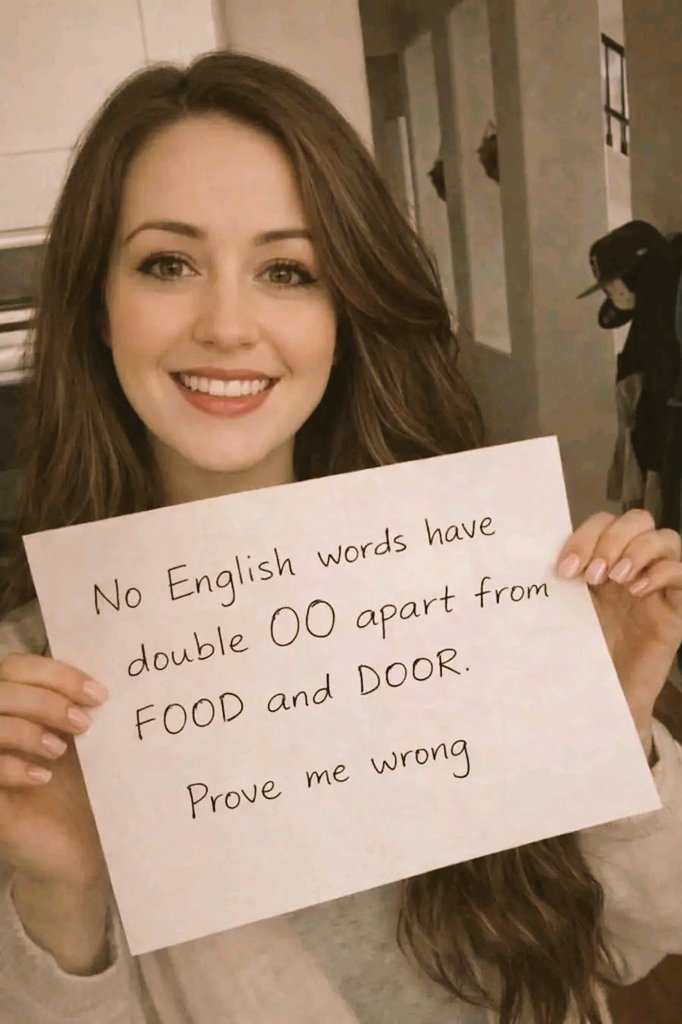 No English words have
double OO apart from
FOOD and DOOR.
Prove me wrong